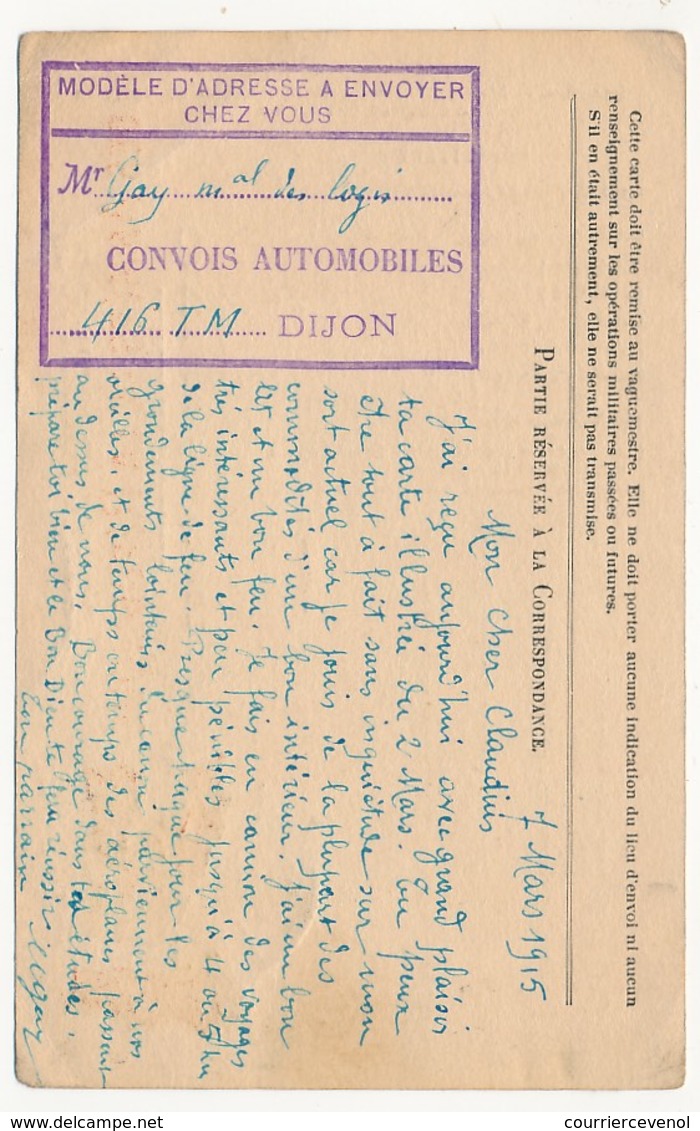 MODÈLE D'ADRESSE A ENVOYER
CHEZ VOUS
Mr Gay mal des logis
CONVOIS AUTOMOBILES
416 TM DIJON
Cette carte doit être remise au vaguemestre. Elle ne doit porter aucune indication du lieu d'envoi ni aucun
renseignement sur les opérations militaires passées ou futures.
S'il en était autrement, elle ne serait pas transmise.
PARTIE RÉSERVÉE À LA CORRESPONDANCE.
7 Mars 1915
Mon cher Claudius
J'ai reçu aujourd'hui avec grand plaisir
ta carte illustrée du 2 Mars. Tu peux
être tout à fait sans inquiétude sur mon
sort actuel car je jouis de la plupart des
commodités d'un bon intérieur. J'ai un bon
lit et un bon feu. Je fais en camion des voyages
très intéressants et peu pénibles jusqu'à 4 ou 5 km
de la ligne de feu. Presque chaque jour les
grondements lointains du canon parviennent à nos
oreilles et de temps en temps des aéroplanes passent
au dessus de nous. Bon courage dans tes études,
prépare toi bien et le Bon Dieu te fera réussir
Ton parrain Gay
courriercevenol.com